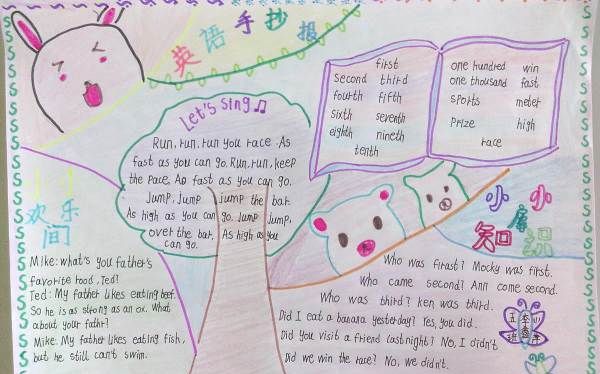 英语手抄报
Let's sing
Run, run, run you race. As
fast as you can go. Run, run, keep
the pace. As fast as you can go.
Jump, jump jump the bat.
As high as you can go. Jump Jump,
over the bat. As high as you
can go.
first
second third
fourth fifth
sixth seventh
eighth nineth
tenth
one hundred win
one thousand fast
sports meter
prize high
race
小小
欢乐
间
Mike: what's you father's
favorite food, Ted?
Ted: My father likes eating beef.
So he is as strong as an ox. What
about your father?
Mike: My father likes eating fish,
but he still can't swim.
小小
知识库
Who was firast? Mocky was first.
Who came second? Ann come second.
Who was third? ken was third.
Did I eat a banana yesterday? Yes, you did.
Did you visit a friend lastnight? No, I didn't
Did we win the race? No, we didn't.
五
班